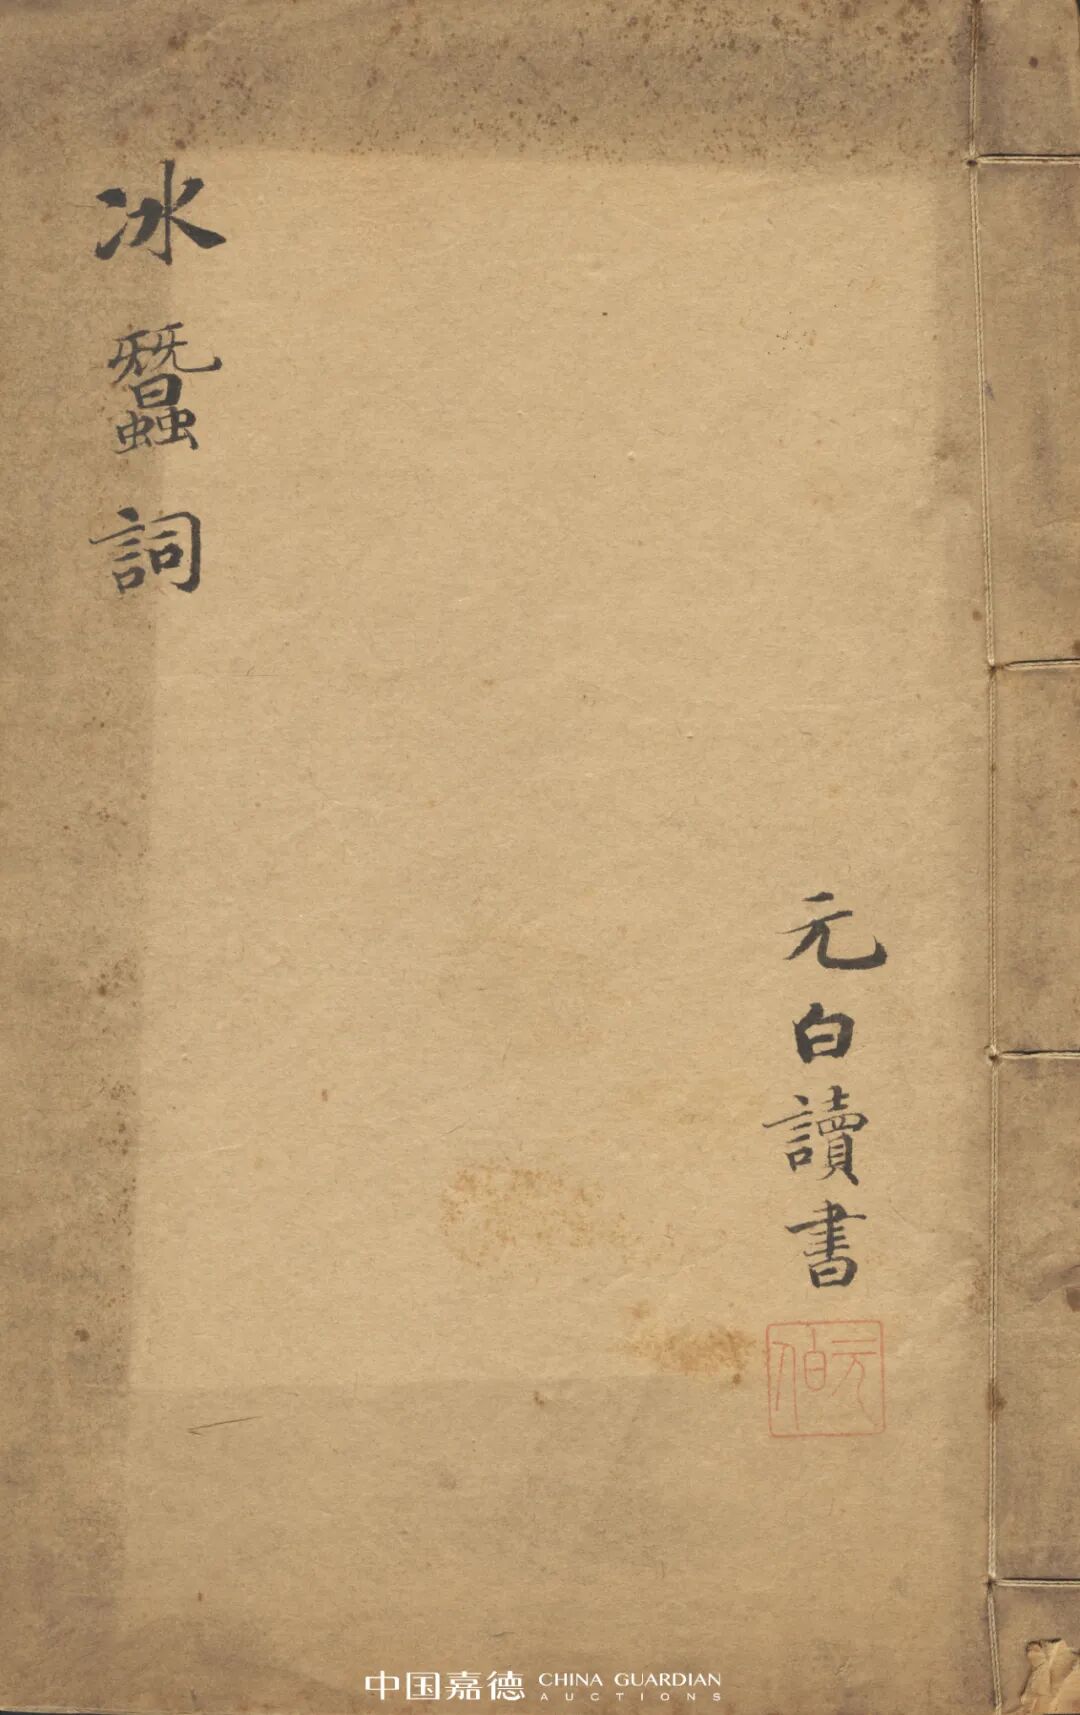 冰蠶詞
元白讀書
元伯
中国嘉德 CHINA GUARDIAN
AUCTIONS